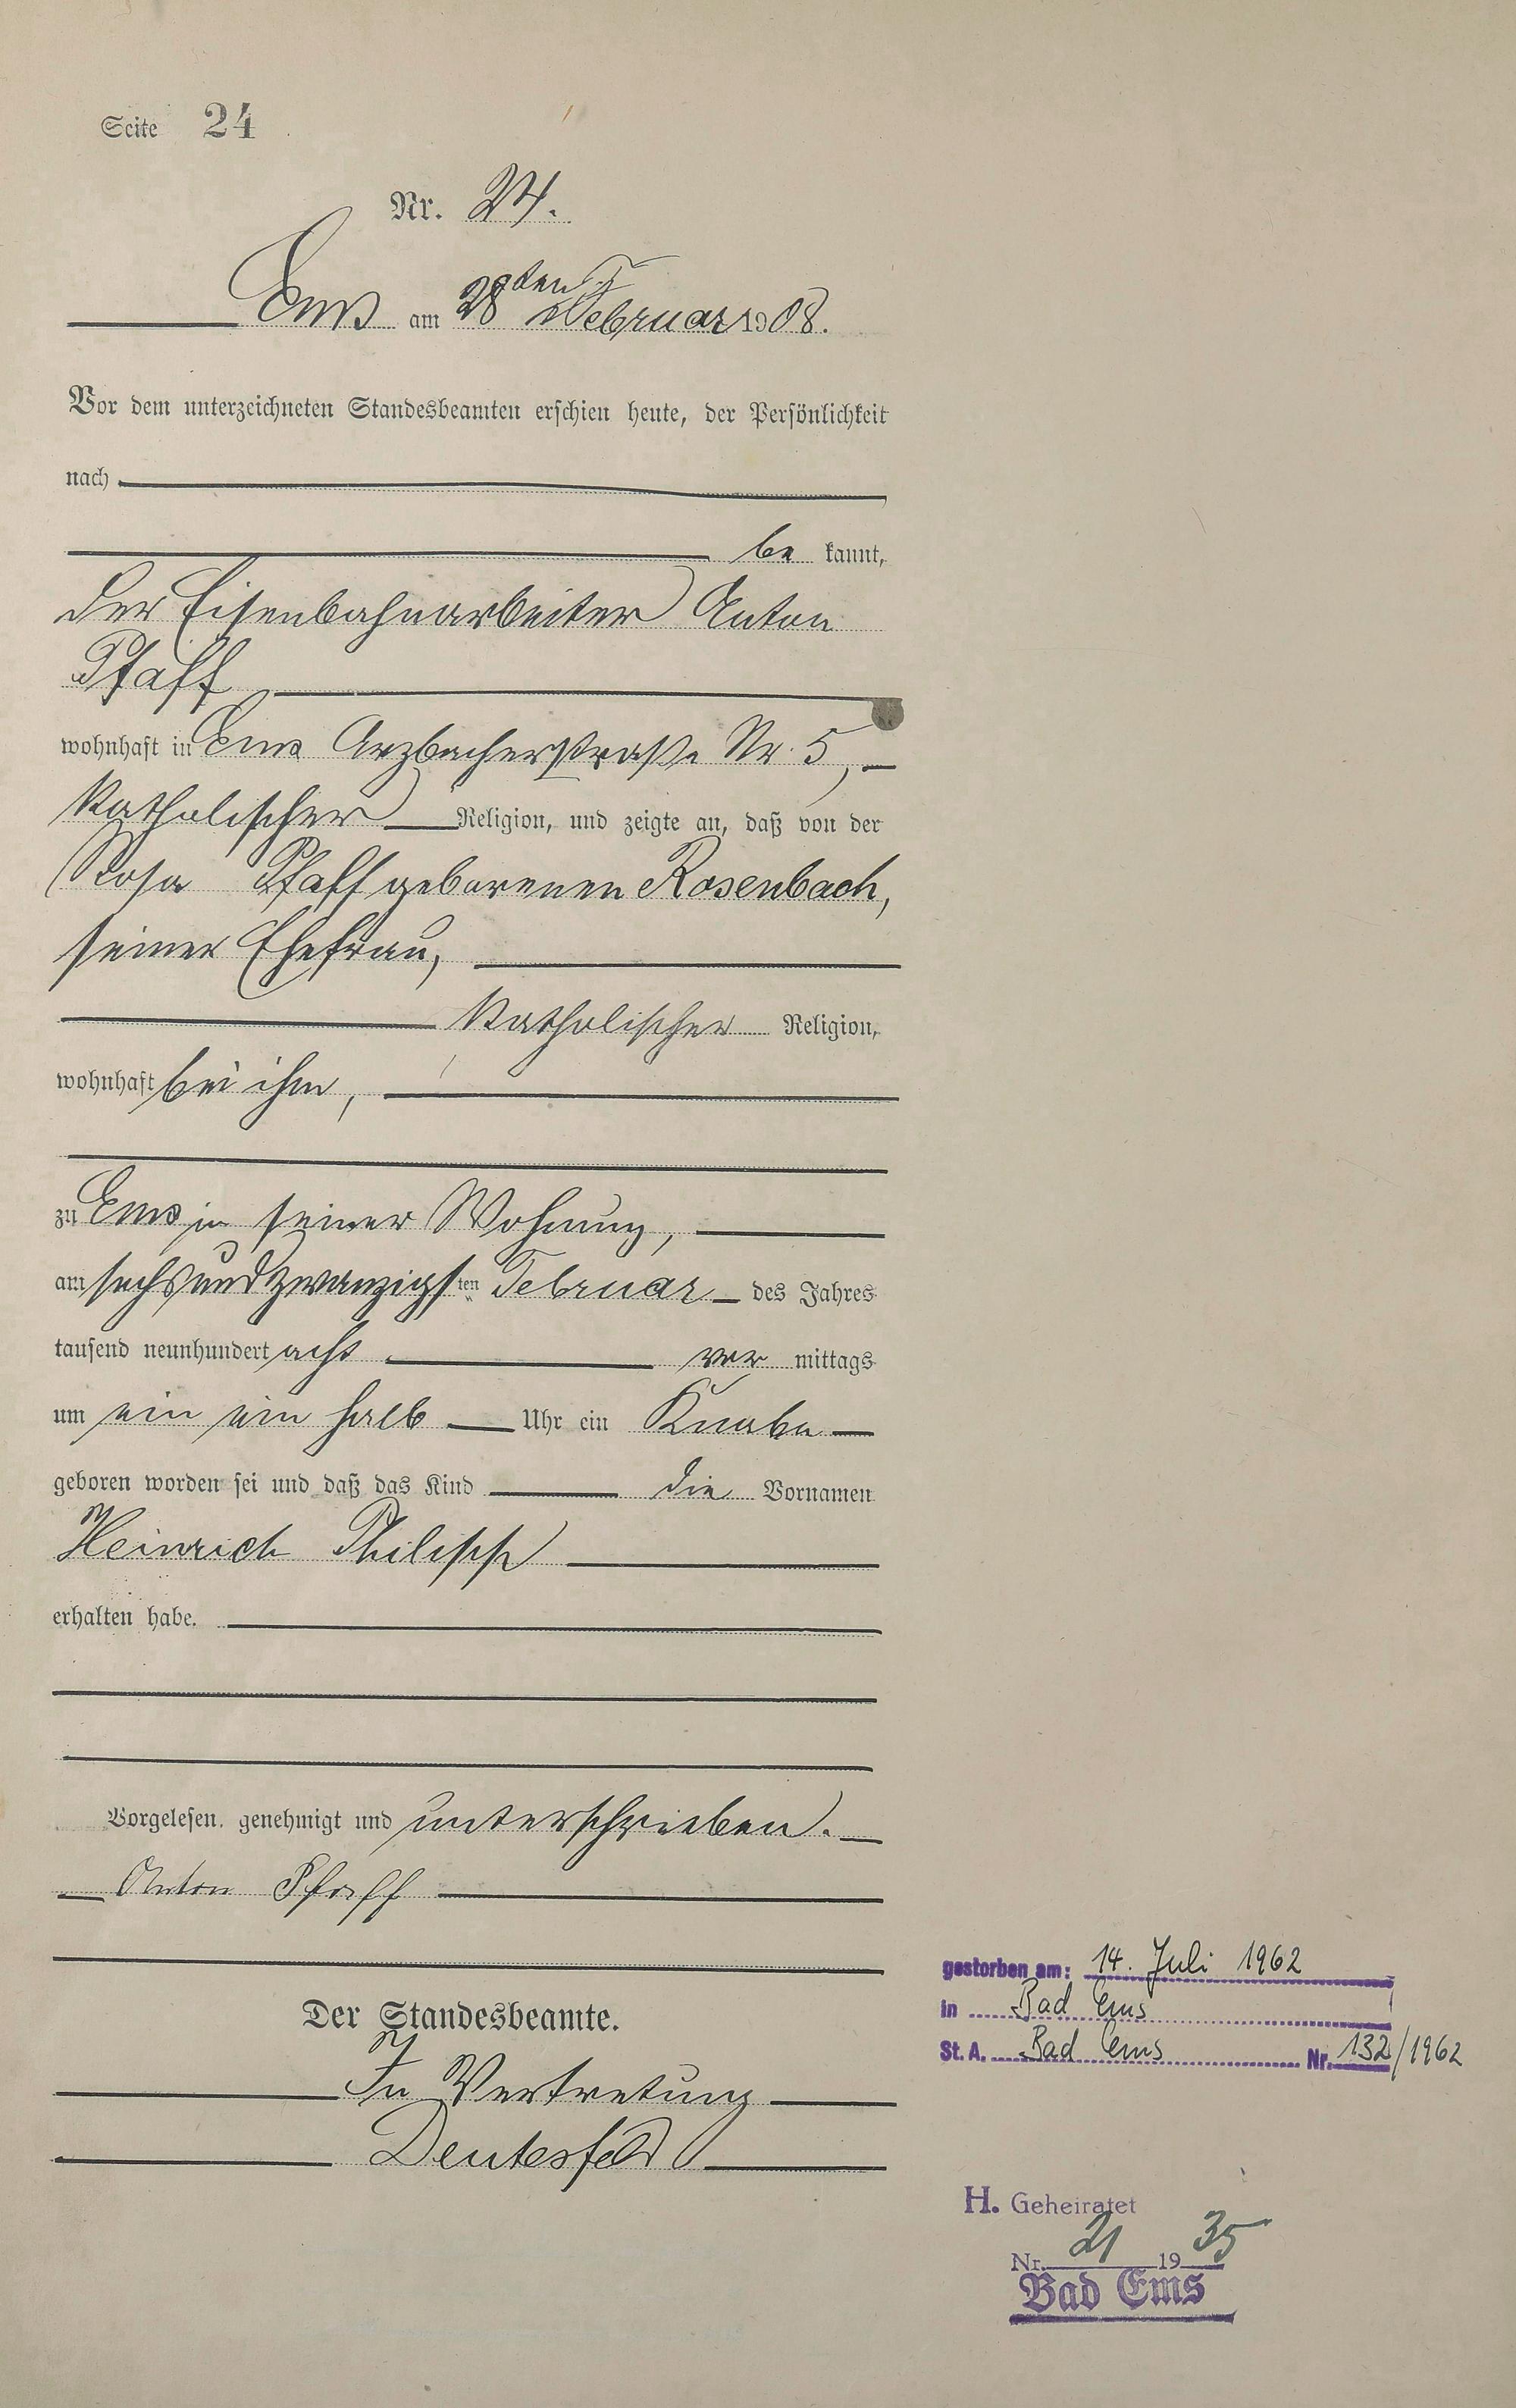 Seite 24
Nr. 24.
Ems am 28ten Februar 1908.
Vor dem unterzeichneten Standesbeamten erschien heute, der Persönlichkeit
nach
be kannt,
der Eisenbahnarbeiter Anton
Pfaff
wohnhaft in Ems Arzbacherstraße Nr. 5,
katholischer Religion, und zeigte an, daß von der
Rosa Pfaff geborenen Rosenbach,
seiner Ehefrau,
katholischer Religion,
wohnhaft bei ihm,
zu Ems in seiner Wohnung,
am sechsundzwanzigsten Februar des Jahres
tausend neunhundert acht vor mittags
um ein ein halb Uhr ein Knabe
geboren worden sei und daß das Kind die Vornamen
Heinrich Philipp
erhalten habe.
Vorgelesen, genehmigt und unterschrieben.
Anton Pfaff
Der Standesbeamte.
In Vertretung
Deutesfeld
gestorben am: 14. Juli 1962
in Bad Ems
St. A. Bad Ems Nr. 132/1962
H. Geheiratet
Nr. 21 1935
Bad Ems